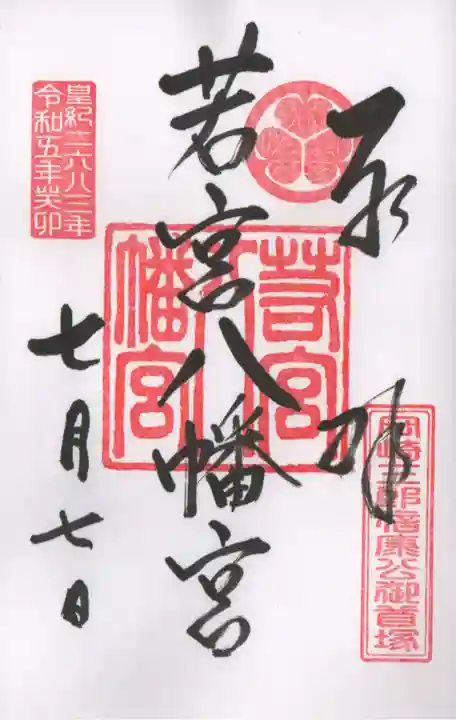 奉拝
岡崎三郎信康公御首塚
若宮八幡宮
若宮八幡宮
皇紀二六八三年
令和五年癸卯
七月七日